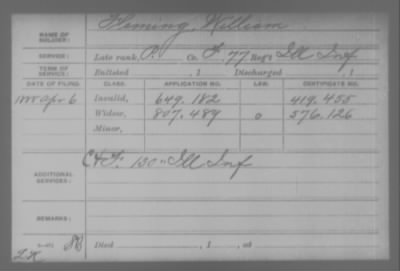 NAME OF SOLDIER: Fleming, William
SERVICE: Late rank, P. Co. F, 77 Reg't Ill Inf
TERM OF SERVICE: Enlisted , 1 Discharged , 1
DATE OF FILING. CLASS. APPLICATION NO. LAW. CERTIFICATE NO.
1888 Apr 6 Invalid, 649.182 419.455
Widow, 807.489 o 576.126
Minor,
ADDITIONAL SERVICES: C & F. 130" Ill Inf
REMARKS:
Died , 1 , at